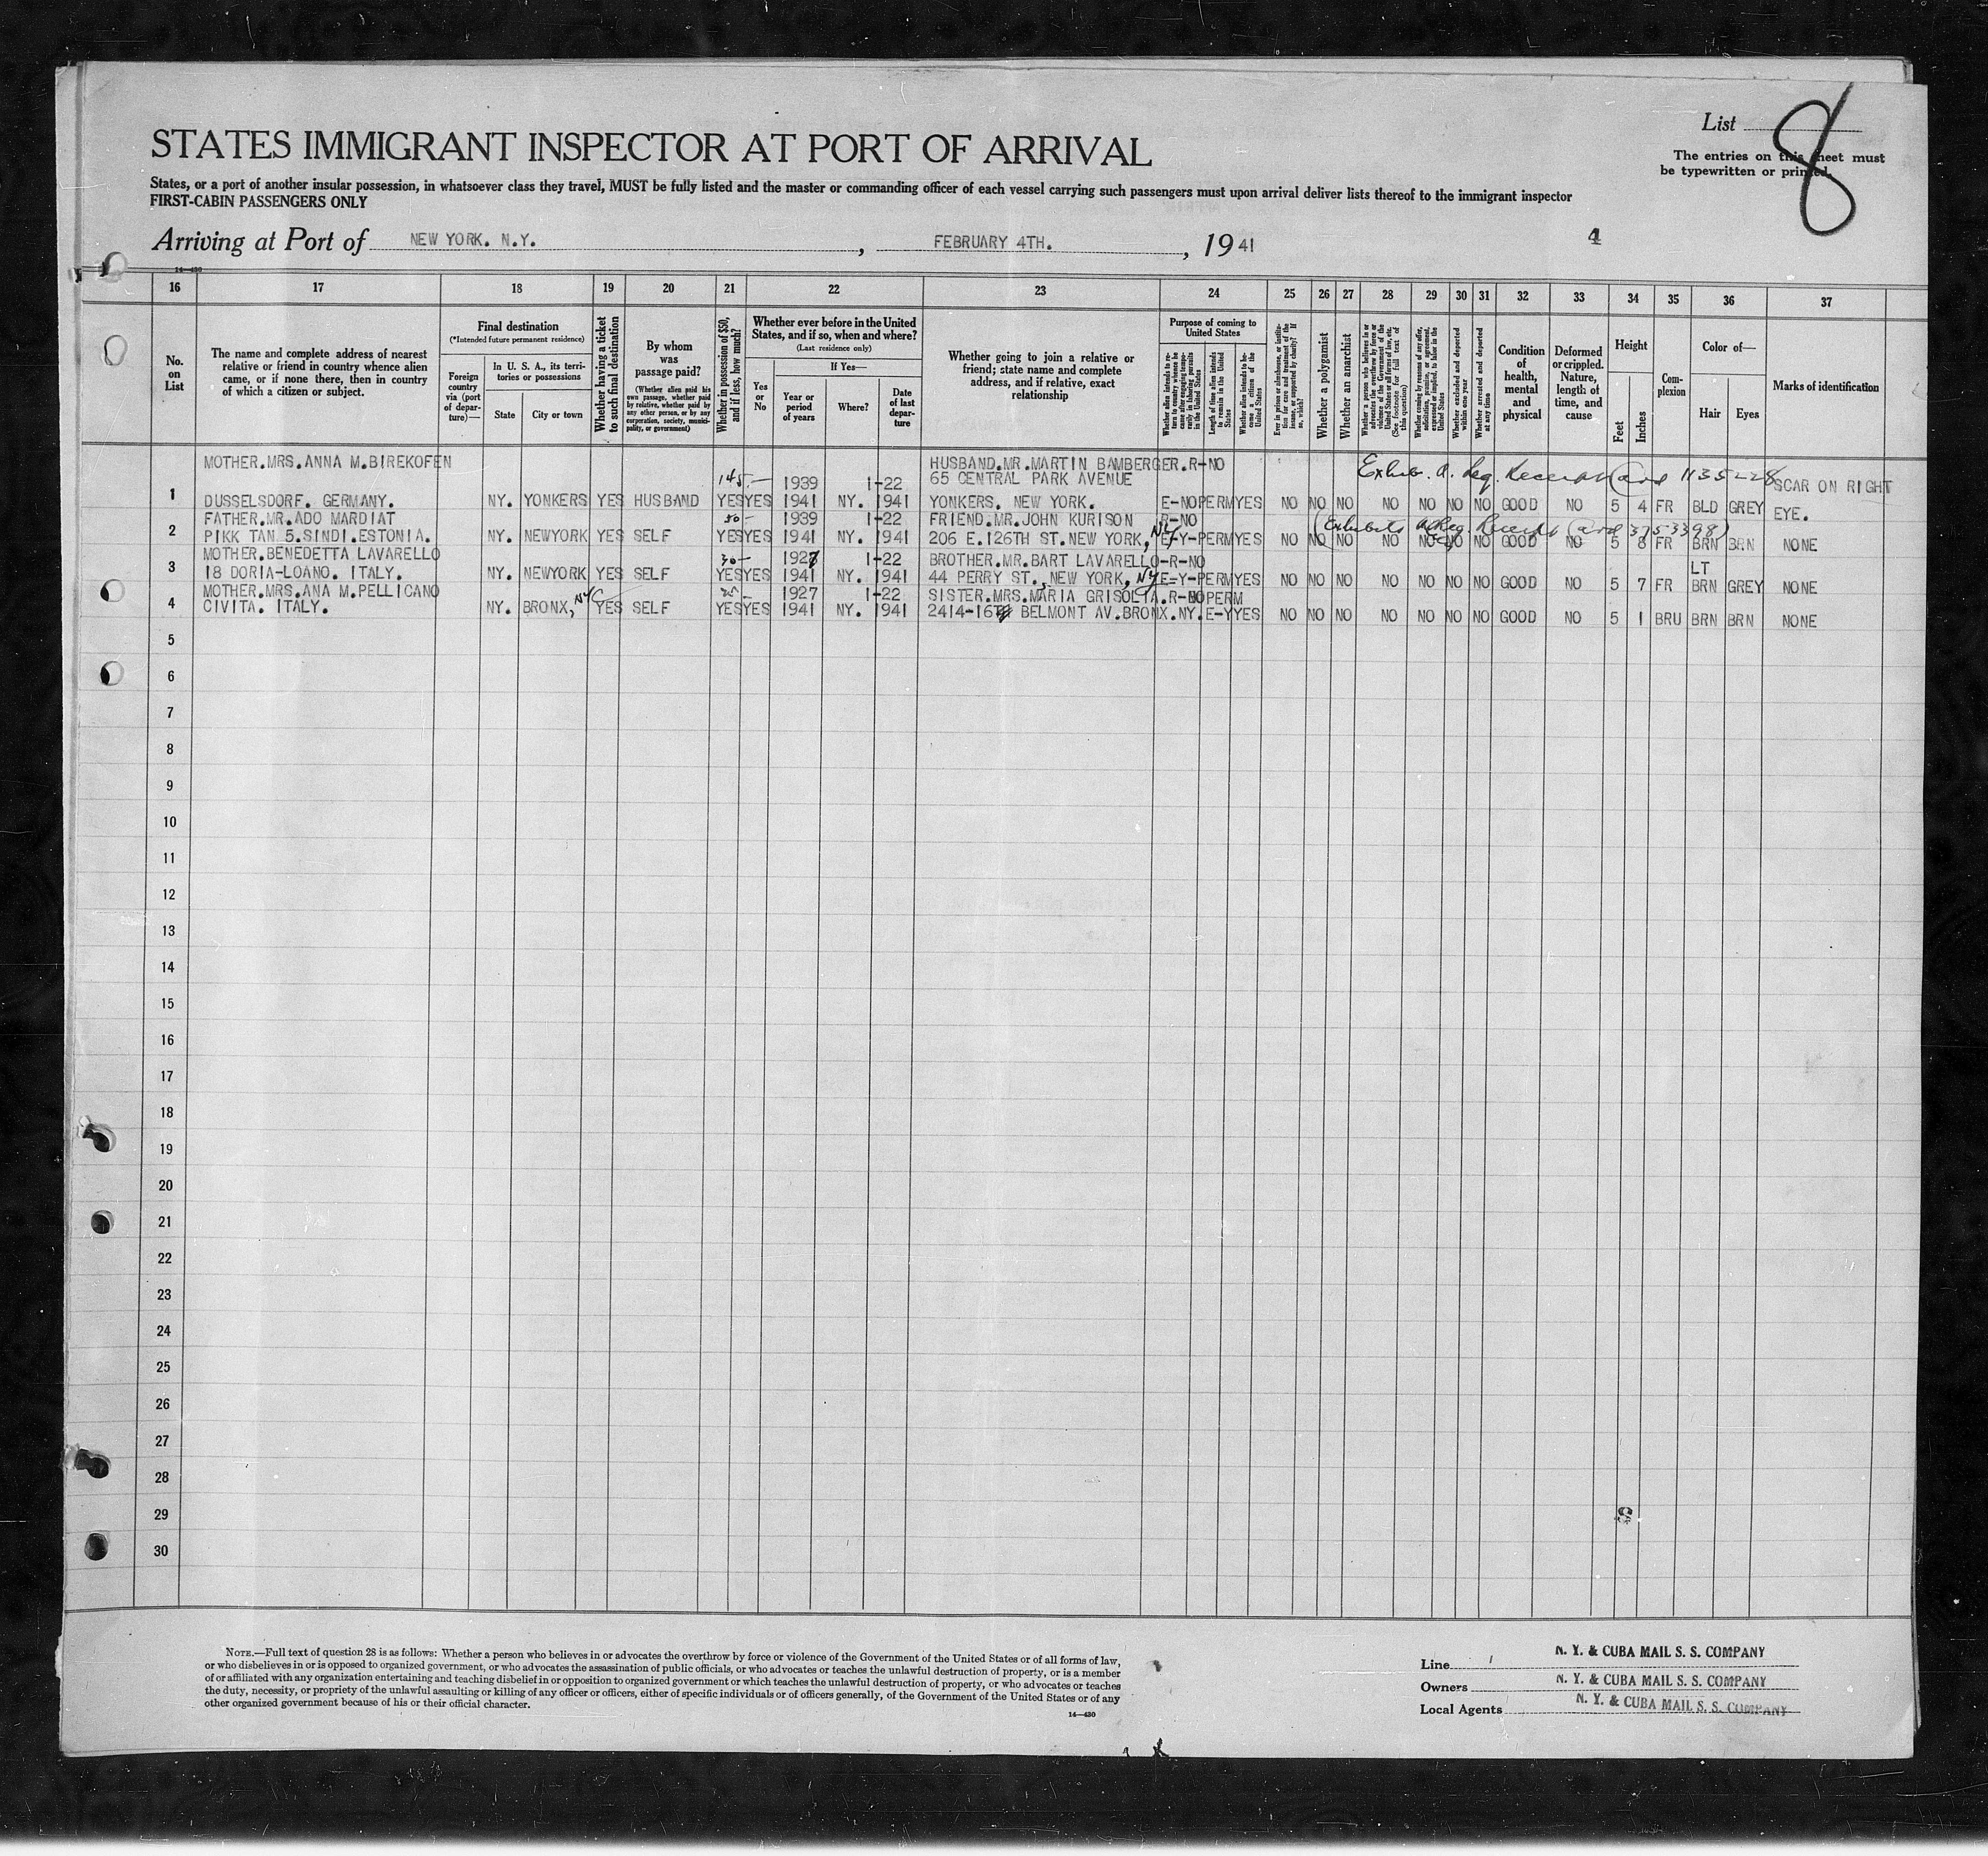 List 8
The entries on this sheet must
be typewritten or printed.
STATES IMMIGRANT INSPECTOR AT PORT OF ARRIVAL
States, or a port of another insular possession, in whatsoever class they travel, MUST be fully listed and the master or commanding officer of each vessel carrying such passengers must upon arrival deliver lists thereof to the immigrant inspector
FIRST-CABIN PASSENGERS ONLY
Arriving at Port of NEW YORK. N.Y. , FEBRUARY 4TH. , 1941
4
14—430
16 17 18 19 20 21 22 23 24 25 26 27 28 29 30 31 32 33 34 35 36 37
No.
on
List
The name and complete address of nearest
relative or friend in country whence alien
came, or if none there, then in country
of which a citizen or subject.
Final destination
(*Intended future permanent residence)
Foreign
country
via (port
of depar-
ture)—
In U. S. A., its terri-
tories or possessions
State
City or town
Whether having a ticket
to such final destination
By whom
was
passage paid?
(Whether alien paid his
own passage, whether paid
by relative, whether paid by
any other person, or by any
corporation, society, munici-
pality, or government)
Whether in possession of $50,
and if less, how much?
Whether ever before in the United
States, and if so, when and where?
(Last residence only)
Yes
or
No
If Yes—
Year or
period
of years
Where?
Date
of last
depar-
ture
Whether going to join a relative or
friend; state name and complete
address, and if relative, exact
relationship
Purpose of coming to
United States
Whether alien intends to re-
turn to country whence he
came after engaging tempo-
rarily in laboring pursuits
in the United States
Length of time alien intends
to remain in the United
States
Whether alien intends to be-
come a citizen of the
United States
Ever in prison or almshouse, or institu-
tion for care and treatment of the
insane, or supported by charity? If
so, which?
Whether a polygamist
Whether an anarchist
Whether a person who believes in or
advocates the overthrow by force or
violence of the Government of the
United States or all forms of law, etc.
(See footnote for full text of
this question)
Whether coming by reason of any offer,
solicitation, promise, or agreement,
expressed or implied, to labor in the
United States
Whether excluded and deported
within one year
Whether arrested and deported
at any time
Condition
of
health,
mental
and
physical
Deformed
or crippled.
Nature,
length of
time, and
cause
Height
Feet
Inches
Com-
plexion
Color of—
Hair
Eyes
Marks of identification
MOTHER.MRS.ANNA M.BIREKOFEN 145.— 1939 1-22 HUSBAND.MR.MARTIN BAMBERGER.R-NO
65 CENTRAL PARK AVENUE
1135228
1 DUSSELSDORF. GERMANY. NY. YONKERS YES HUSBAND YES YES 1941 NY. 1941 YONKERS. NEW YORK. E-NO PERM YES NO NO NO NO NO NO NO GOOD NO 5 4 FR BLD GREY SCAR ON RIGHT
EYE.
FATHER.MR.ADO MARDIAT 50- 1939 1-22 FRIEND.MR.JOHN KURISON R-NO
(Exhibits Reg. Receipt Card 3753398)
2 PIKK TAN 5.SINDI.ESTONIA. NY. NEWYORK YES SELF YES YES 1941 NY. 1941 206 E.126TH ST.NEW YORK, NY E-Y-PERM YES NO NO NO NO NO NO NO GOOD NO 5 8 FR BRN BRN NONE
MOTHER.BENEDETTA LAVARELLO 30- 1927 1-22 BROTHER.MR.BART LAVARELLO-R-NO
3 18 DORIA-LOANO. ITALY. NY. NEWYORK YES SELF YES YES 1941 NY. 1941 44 PERRY ST., NEW YORK, NY E-Y-PERM YES NO NO NO NO NO NO NO GOOD NO 5 7 FR LT BRN GREY NONE
MOTHER.MRS.ANA M.PELLICANO 1927 1-22 SISTER.MRS.MARIA GRISOLIA.R-NO PERM
4 CIVITA. ITALY. NY. BRONX, NYC YES SELF YES YES 1941 NY. 1941 2414-16 BELMONT AV.BRONX.NY. E-Y YES NO NO NO NO NO NO NO GOOD NO 5 1 BRU BRN BRN NONE
5
6
7
8
9
10
11
12
13
14
15
16
17
18
19
20
21
22
23
24
25
26
27
28
29
30
NOTE.—Full text of question 28 is as follows: Whether a person who believes in or advocates the overthrow by force or violence of the Government of the United States or of all forms of law,
or who disbelieves in or is opposed to organized government, or who advocates the assassination of public officials, or who advocates or teaches the unlawful destruction of property, or is a member
of or affiliated with any organization entertaining and teaching disbelief in or opposition to organized government or which teaches the unlawful destruction of property, or who advocates or teaches
the duty, necessity, or propriety of the unlawful assaulting or killing of any officer or officers, either of specific individuals or of officers generally, of the Government of the United States or of any
other organized government because of his or their official character.
14—430
Line N. Y. & CUBA MAIL S. S. COMPANY
Owners N. Y. & CUBA MAIL S. S. COMPANY
Local Agents N. Y. & CUBA MAIL S. S. COMPANY